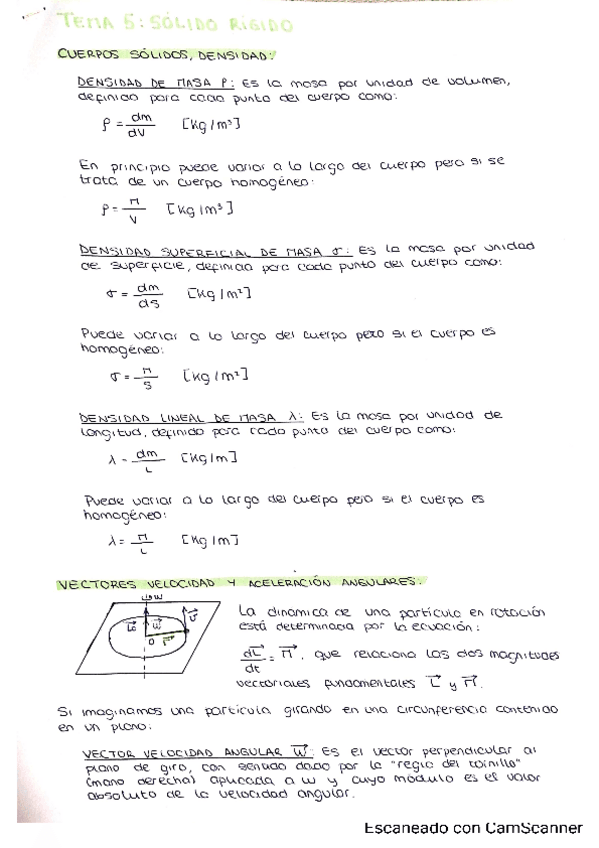 TEMA 5: SÓLIDO RÍGIDO
CUERPOS SÓLIDOS, DENSIDAD:
DENSIDAD DE MASA ρ: Es la masa por unidad de volumen,
definida para cada punto del cuerpo como:
ρ = dm/dV [Kg/m³]
En principio puede variar a lo largo del cuerpo pero si se
trata de un cuerpo homogéneo:
ρ = M/V [Kg/m³]
DENSIDAD SUPERFICIAL DE MASA σ: Es la masa por unidad
de superficie, definida para cada punto del cuerpo como:
σ = dm/dS [Kg/m²]
Puede variar a lo largo del cuerpo pero si el cuerpo es
homogéneo:
σ = M/S [Kg/m²]
DENSIDAD LINEAL DE MASA λ: Es la masa por unidad de
longitud, definida para cada punto del cuerpo como:
λ = dm/L [Kg/m]
Puede variar a lo largo del cuerpo pero si el cuerpo es
homogéneo:
λ = M/L [Kg/m]
VECTORES VELOCIDAD Y ACELERACIÓN ANGULARES:
La dinamica de una partícula en rotación
está determinada por la ecuación:
dL⃗/dt = M⃗. que relaciona las dos magnitudes
vectoriales fundamentales L⃗ y M⃗.
Si imaginamos una partícula girando en una circunferencia contenida
en un plano:
VECTOR VELOCIDAD ANGULAR W⃗: Es el vector perpendicular al
plano de giro, con sentido dado por la "regla del tornillo"
(mano derecha) aplicada a w y cuyo módulo es el valor
absoluto de la velocidad angular.
Escaneado con CamScanner